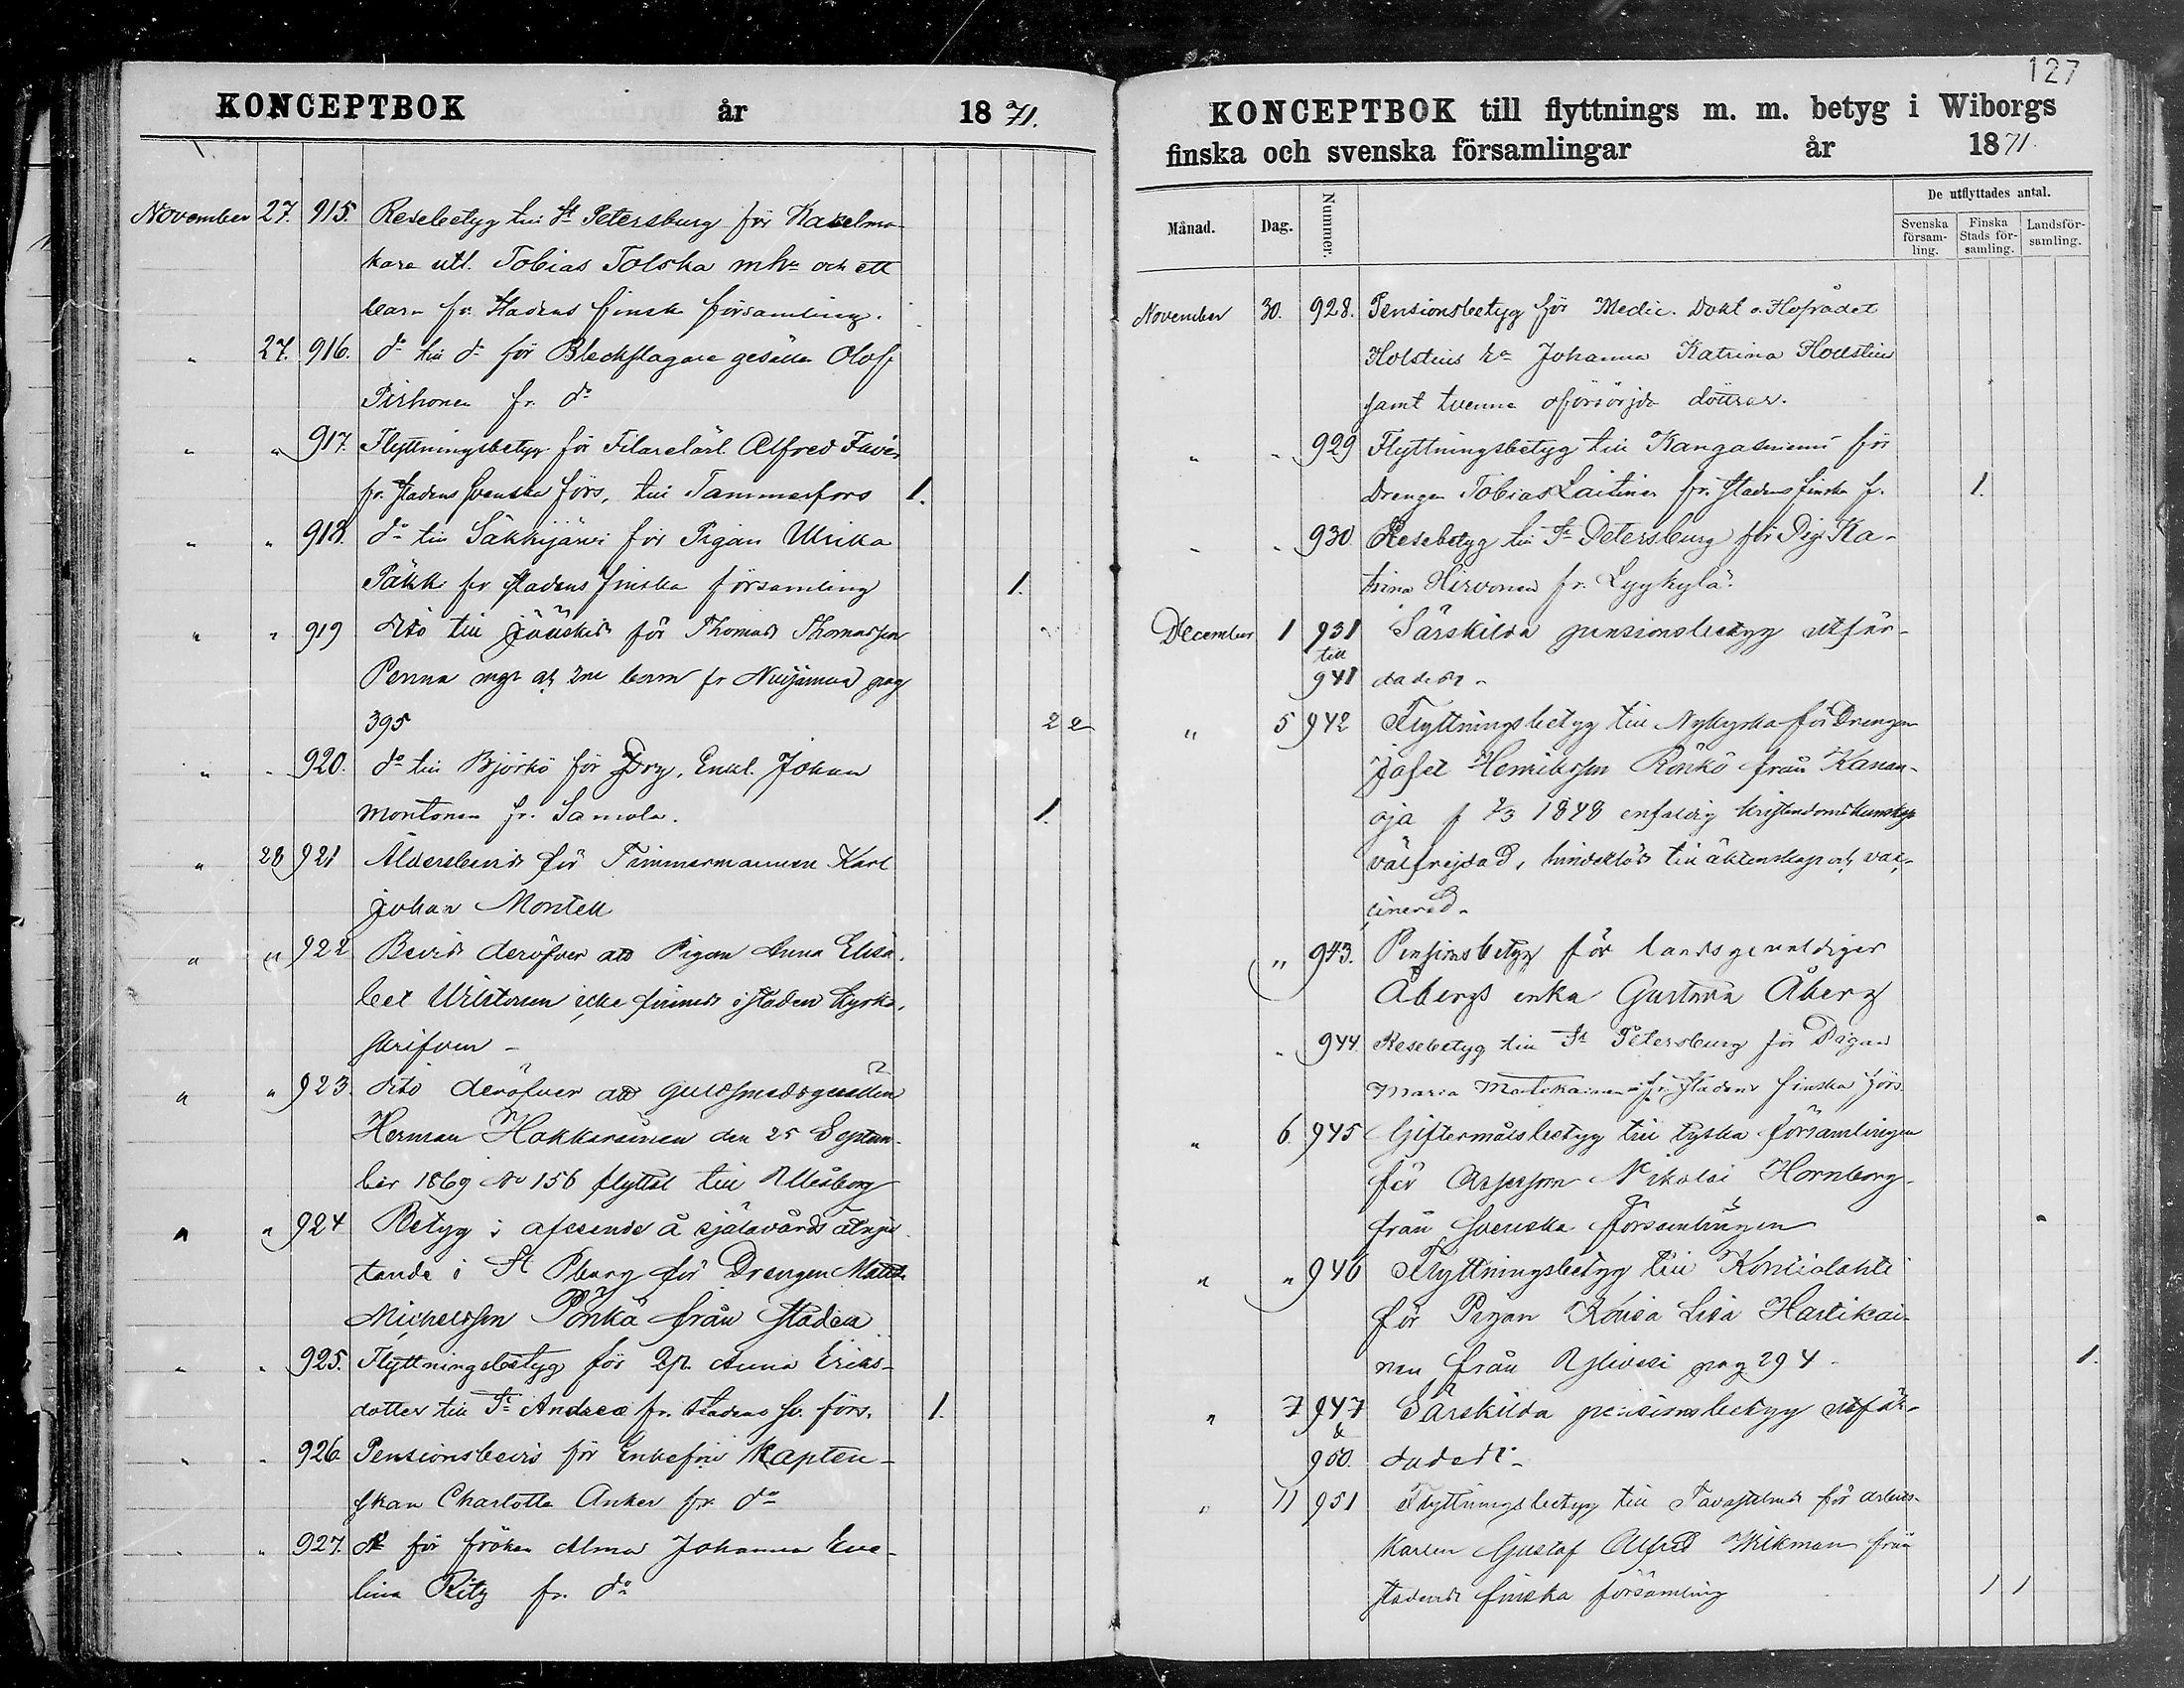 KONCEPTBOK år 1871.
November 27. 915. Resebetyg till St Petersburg för Kakelma-
kare utl. Tobias Tolska mhu och ett
barn fr. Stadens finska församling.
" 27. 916. do till do för Bleckslagare gesälle Olof
Pirhonen fr. do
" " 917. Flyttningsbetyg för Filarelärl. Alfred Favén
fr. stadens svenska förs. till Tammerfors 1.
" " 918. do till Säkkijärvi för Pigan Ulrika
Päkk fr stadens finska församling 1.
" " 919 dito till Jääskis för Thomas Thomasson
Penna och 2ne barn fr Nuijamaa pag
395 2 2
" " 920. do till Björkö för Johan
Montonen fr. Samola. 1.
" 28 921 Åldersbevis för Timmermannen Karl
Johan Montell
" " 922 Bevis deröfver att Pigan Anna Elisa-
bet icke finnes i staden kyrko-
skrifven -
" " 923. dito deröfver att guldsmedsgesällen
Herman Hakkarainen den 25 Septem-
ber 1869 No 156 flyttat till Uleåborg
" " 924 Betyg i afseende å själavårds åtnju-
tande i St Pburg för Drengen Matts
Michelsson Pönkä från staden
" " 925. Flyttningsbetyg för Anna Eriks-
dotter till St Andreæ fr. stadens sv. förs. 1.
" " 926. Pensionsbevis för Enkefru Kapten-
skan Charlotta Anker fr. do
" " 927. do för fröken Alma Johanna Eve-
lina Ritz fr. do
127
KONCEPTBOK till flyttnings m. m. betyg i Wiborgs
finska och svenska församlingar år 1871.
Månad. Dag. Nummer. De utflyttades antal.
Svenska församling. Finska Stads församling. Landsförsamling.
November 30. 928. Pensionsbetyg för Medic. Dokt o. Hofrådet
Holstius Ea Johanna Katrina Hollstius
samt tvenne oförsörjda döttrar.
" " 929 Flyttningsbetyg till Kangasniemi för
Drengen Tobias Laitinen fr. stadens finska f. 1.
" " 930. Resebetyg till St Petersburg för Pig. Ka-
trina Hirvonen fr. Lyykylä.
December 1 931 Särskilda pensionsbetyg utfär-
till
941 dades.
" 5 942 Flyttningsbetyg till Nykyrka för Drengen
Jafet Henriksson Rönkö från Kanan-
oja f 7/3 1848 enfaldig kristendomskunskap
välfrejdad, hinderlös till äktenskap och vac-
cinerad.
" 943. Pensionsbetyg för landsgevaldiger
Åbergs enka Gustava Åberg
" 944. Resebetyg till St Petersburg för Pigan
Maria Martikainen fr. stadens finska förs.
" 6. 945 Giftermålsbetyg till tyska församlingen
för Nikolai Hornborg
från svenska församlingen
" " 946 Flyttningsbetyg till Kontiolahti
för Pigan Lovisa Lisa Hartikai-
nen från Ylivesi pag 294 1.
" 7 947 Särskilda pensionsbetyg utfär-
&
950. dades.
" 11 951 Flyttningsbetyg till Tavastehus för arbets-
karlen Gustaf Alfred Wikman från
stadens finska församling 1 1